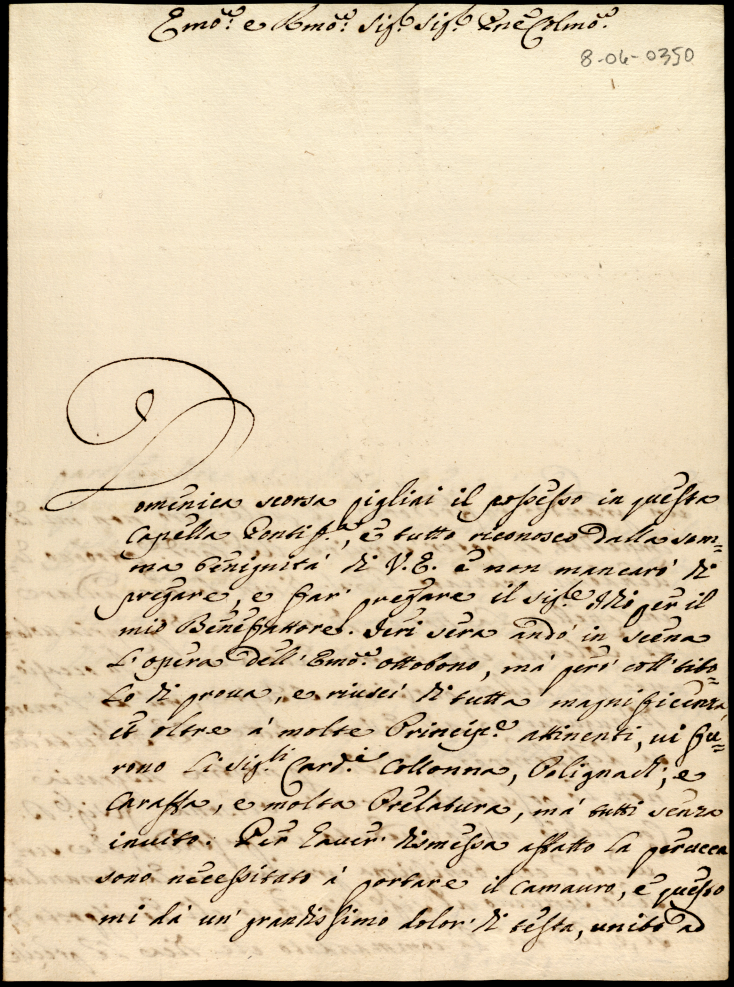 Emo: e Rmo: Sigr. Sigr. Pne Colmo:
8-06-0350
Domenica scorsa pigliai il possesso in questa
Capella Pontifa., è tutto riconosco dalla som=
ma benignità di V.E. è non mancarò di
pregare, e far' pregare il sige. Idio per il
mio Benefattore. Ieri sera andò in scena
L'opera dell'Emo. ottobono, mà però coll tito=
lo di prova, e riuscì di tutta magnificenza,
et oltre à molte Principe. attinenti, vi fu=
rono Li Sigli. Cardi. Collonna, Polignach, e
Caraffa, e molta Prelatura, mà tutti senza
invito. Per haver' dismessa affatto la perucca
sono necessitato à portare il camauro, e questo
mi dà un' grandissimo dolor' di testa, unito ad